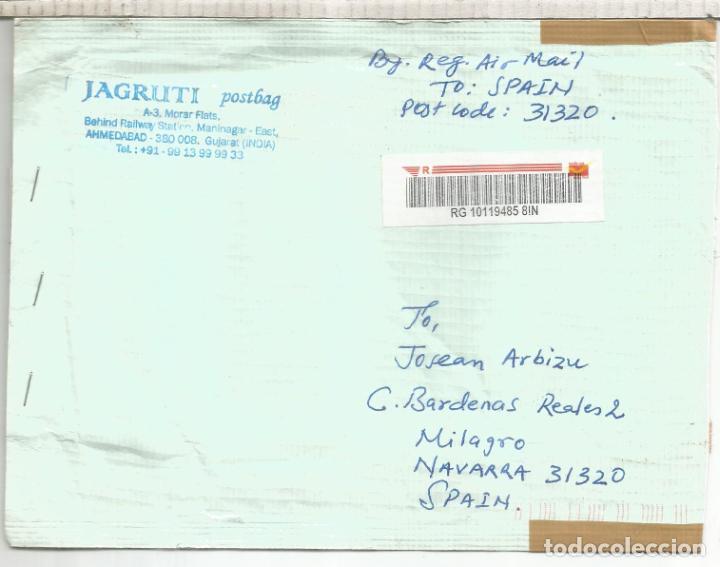 JAGRUTI postbag
A-3, Morar Flats,
Behind Railway Station, Maninagar - East,
AHMEDABAD - 380 008. Gujarat (INDIA)
Tel. : +91 - 99 13 99 99 33
By. Reg. Air Mail
To: SPAIN
Post code: 31320.
R
RG 10119485 8IN
To,
Josean Arbizu
C. Bardenas Reales 2
Milagro
NAVARRA 31320
SPAIN.
todocoleccion.net